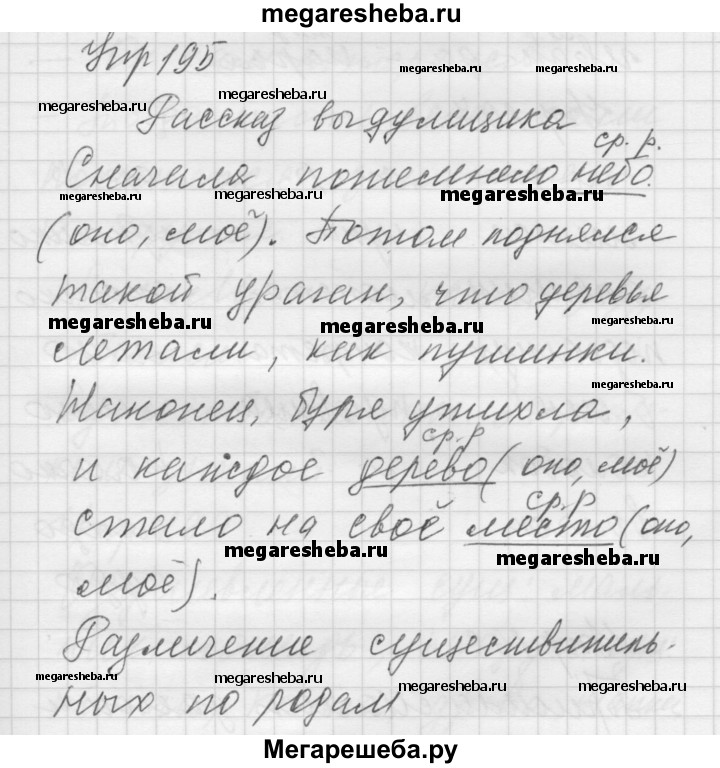 megaresheba.ru
Упр 195
megaresheba.ru
megaresheba.ru
megaresheba.ru
megaresheba.ru
Рассказ выдумщика
ср. р.
Сначала потемнело небо
megaresheba.ru
megaresheba.ru
megaresheba.ru
(оно, моё). Потом поднялся
такой ураган, что деревья
megaresheba.ru
megaresheba.ru
megaresheba.ru
летали, как пушинки.
megaresheba.ru
Наконец, буря утихла,
ср. р
и каждое дерево (оно, моё)
ср. р
стало на своё место (оно,
megaresheba.ru
megaresheba.ru
моё).
Различение существитель-
megaresheba.ru
megaresheba.ru
megaresheba.ru
megaresheba.ru
ных по родам
Мегарешеба.ру